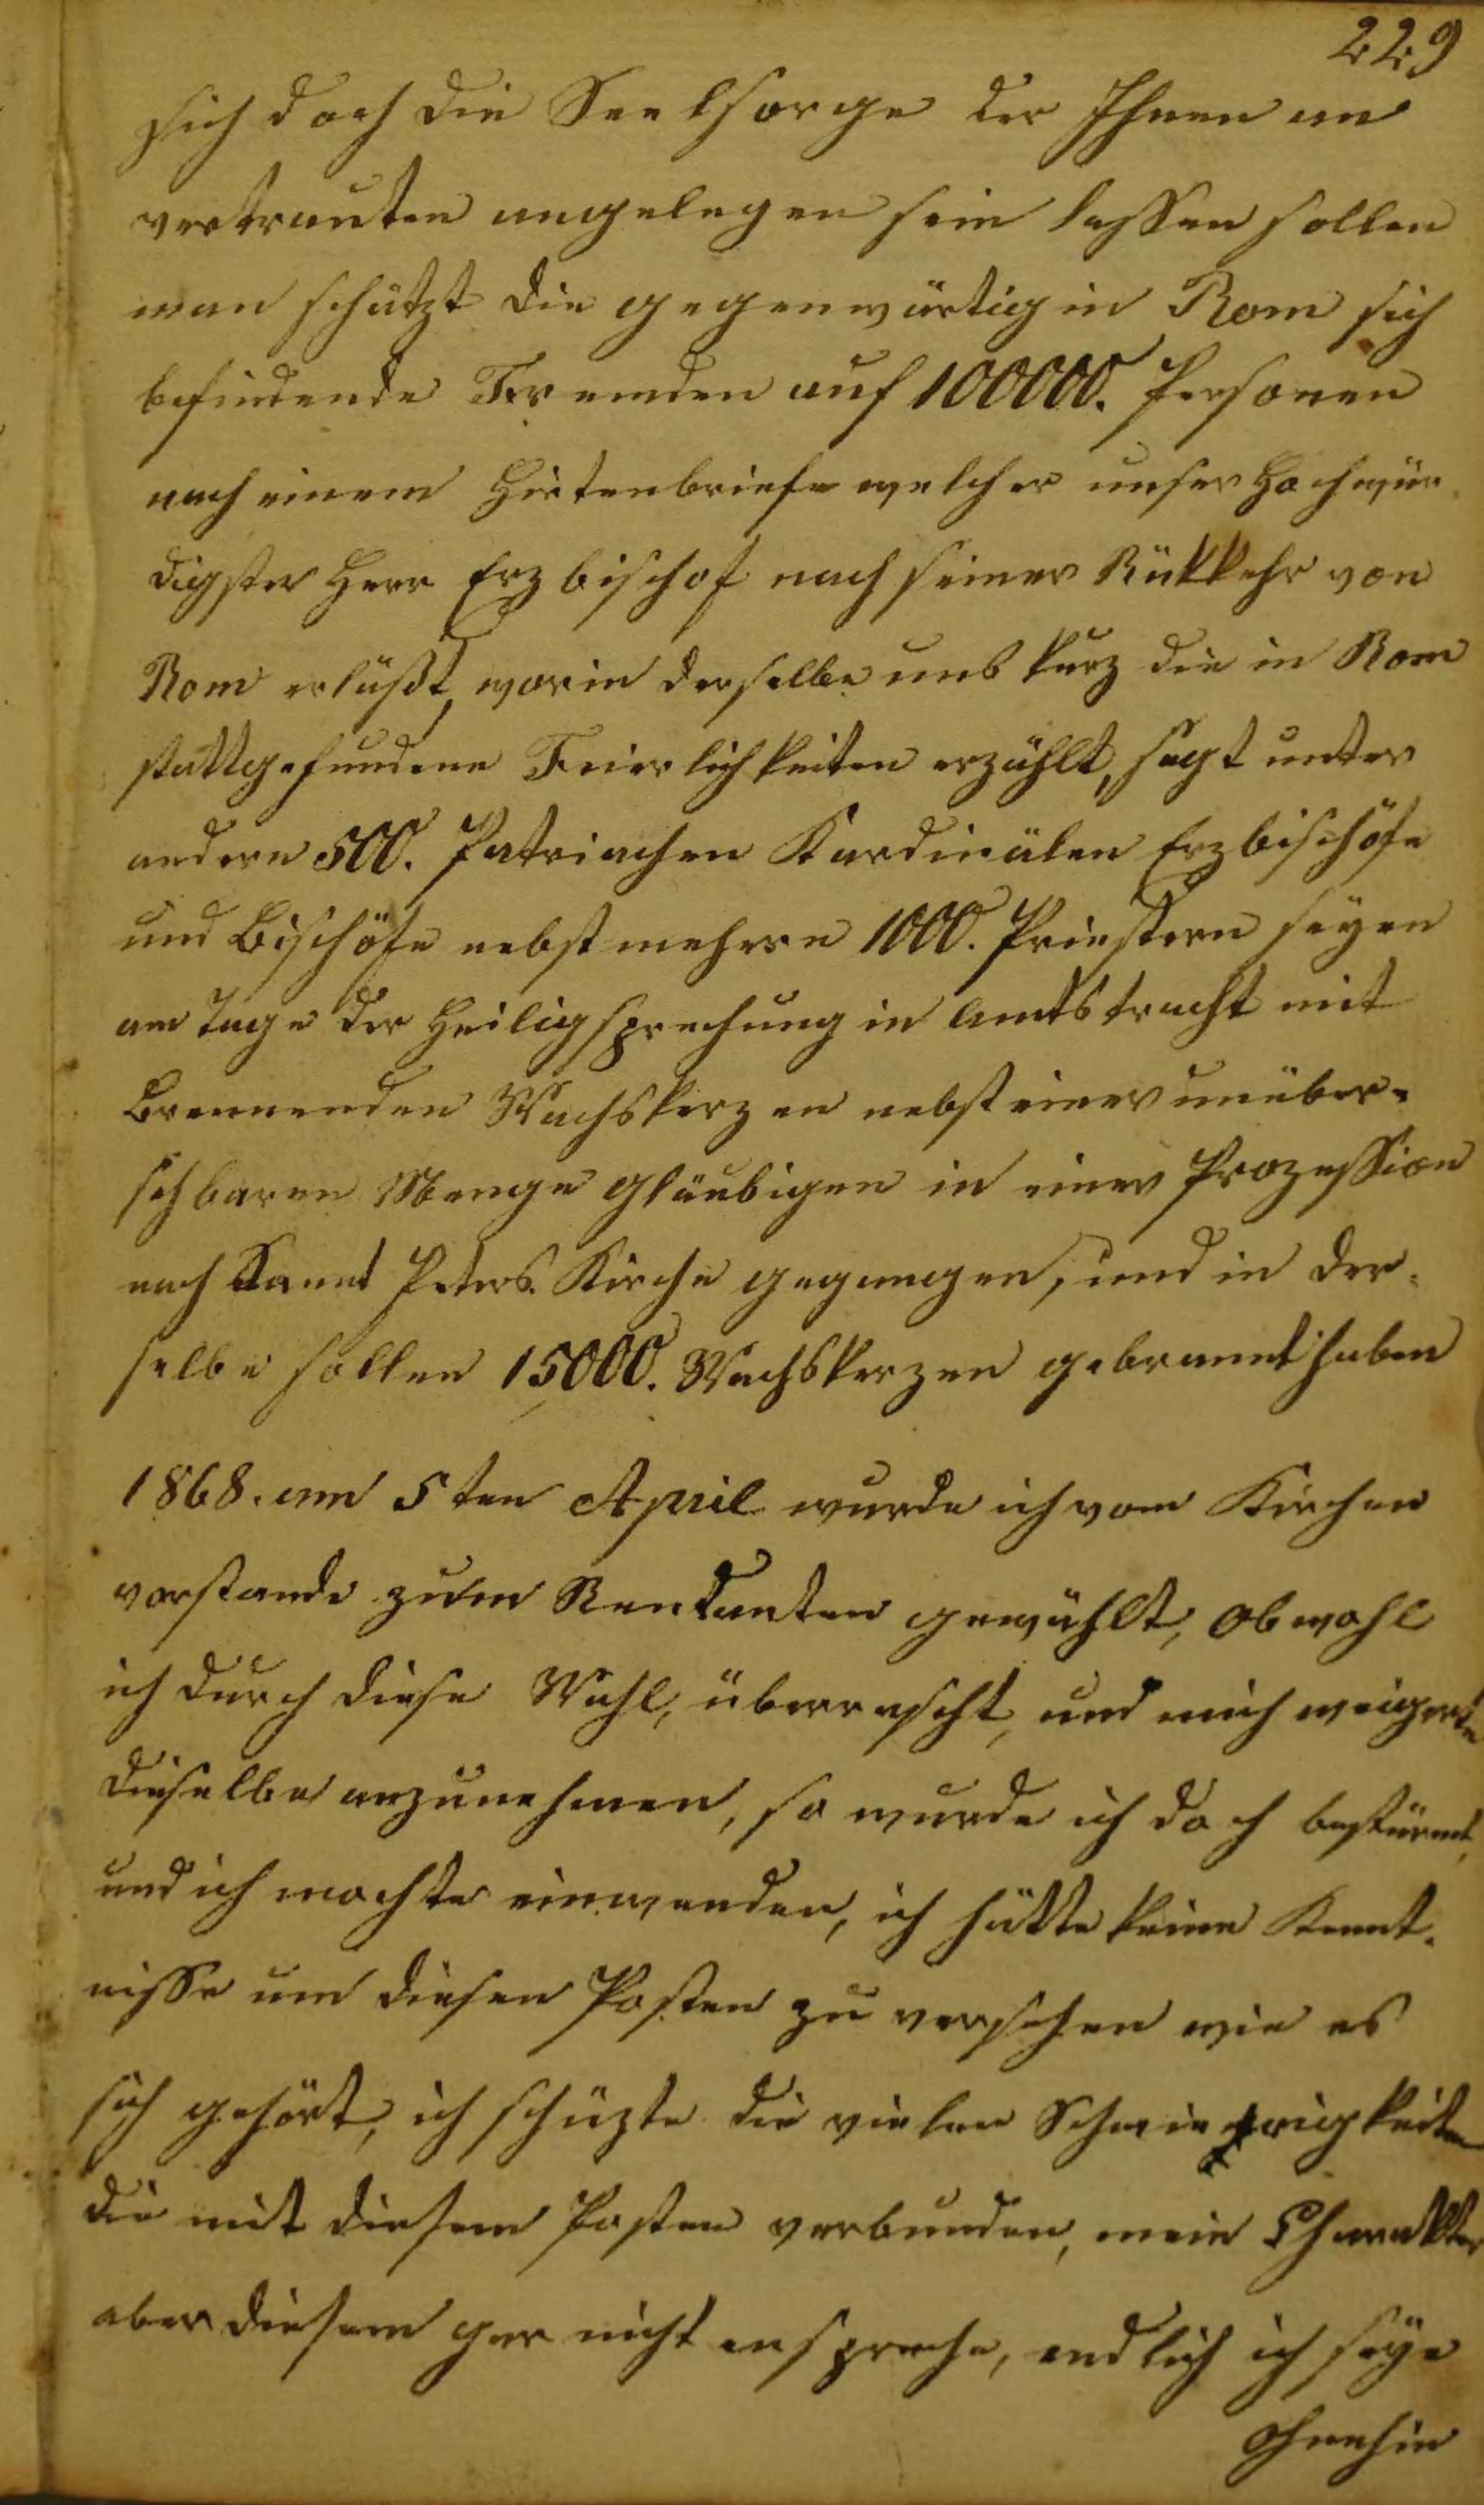 229
sich doch die Seelsorge der Ihnen an
vertrauten angelegen sein lassen sollen
man schätzt die gegenwärtig in Rom sich
befindende Fremden auf 100000. Personen
nach einem Hirtenbriefe welcher unser Hochwür-
digster Herr Erzbischof nach seiner Rükkehr von
Rom erläßt, worin derselbe uns kurz die in Rom
stattgefundene Feierlichkeiten erzählt, sagt unter
andern 500. Patriachen Kardinälen Erzbischöfe
und Bischöfe nebst mehrere 1000. Priestern seyen
am Tage der Heiligsprechung in Amtstracht mit
Brennenden Wachskerzen nebst einer unüber-
sehbaren Menge Gläubigen in einer Prozession
nach Sannt Peters. Kirche gegangen, und in der-
selbe sollen 15000. Wachskerzen gebrannt haben
1868. am 5ten April wurde ich vom Kirchen
vorstande zum Rendanten gewählt, obwohl
ich durch diese Wahl, überrascht, und mich weigerte
dieselbe anzunehmen, so wurde ich doch bestürmt,
und ich mochte einwenden, ich hätte keine Kennt-
nisse um diesen Posten zu versehen wie es
sich gehört, ich schüzte die vielen Schwierigkeiten
die mit diesem Posten verbunden, mein Charakter
aber diesem gar nicht anspreche, endlich ich seye
ohnehin